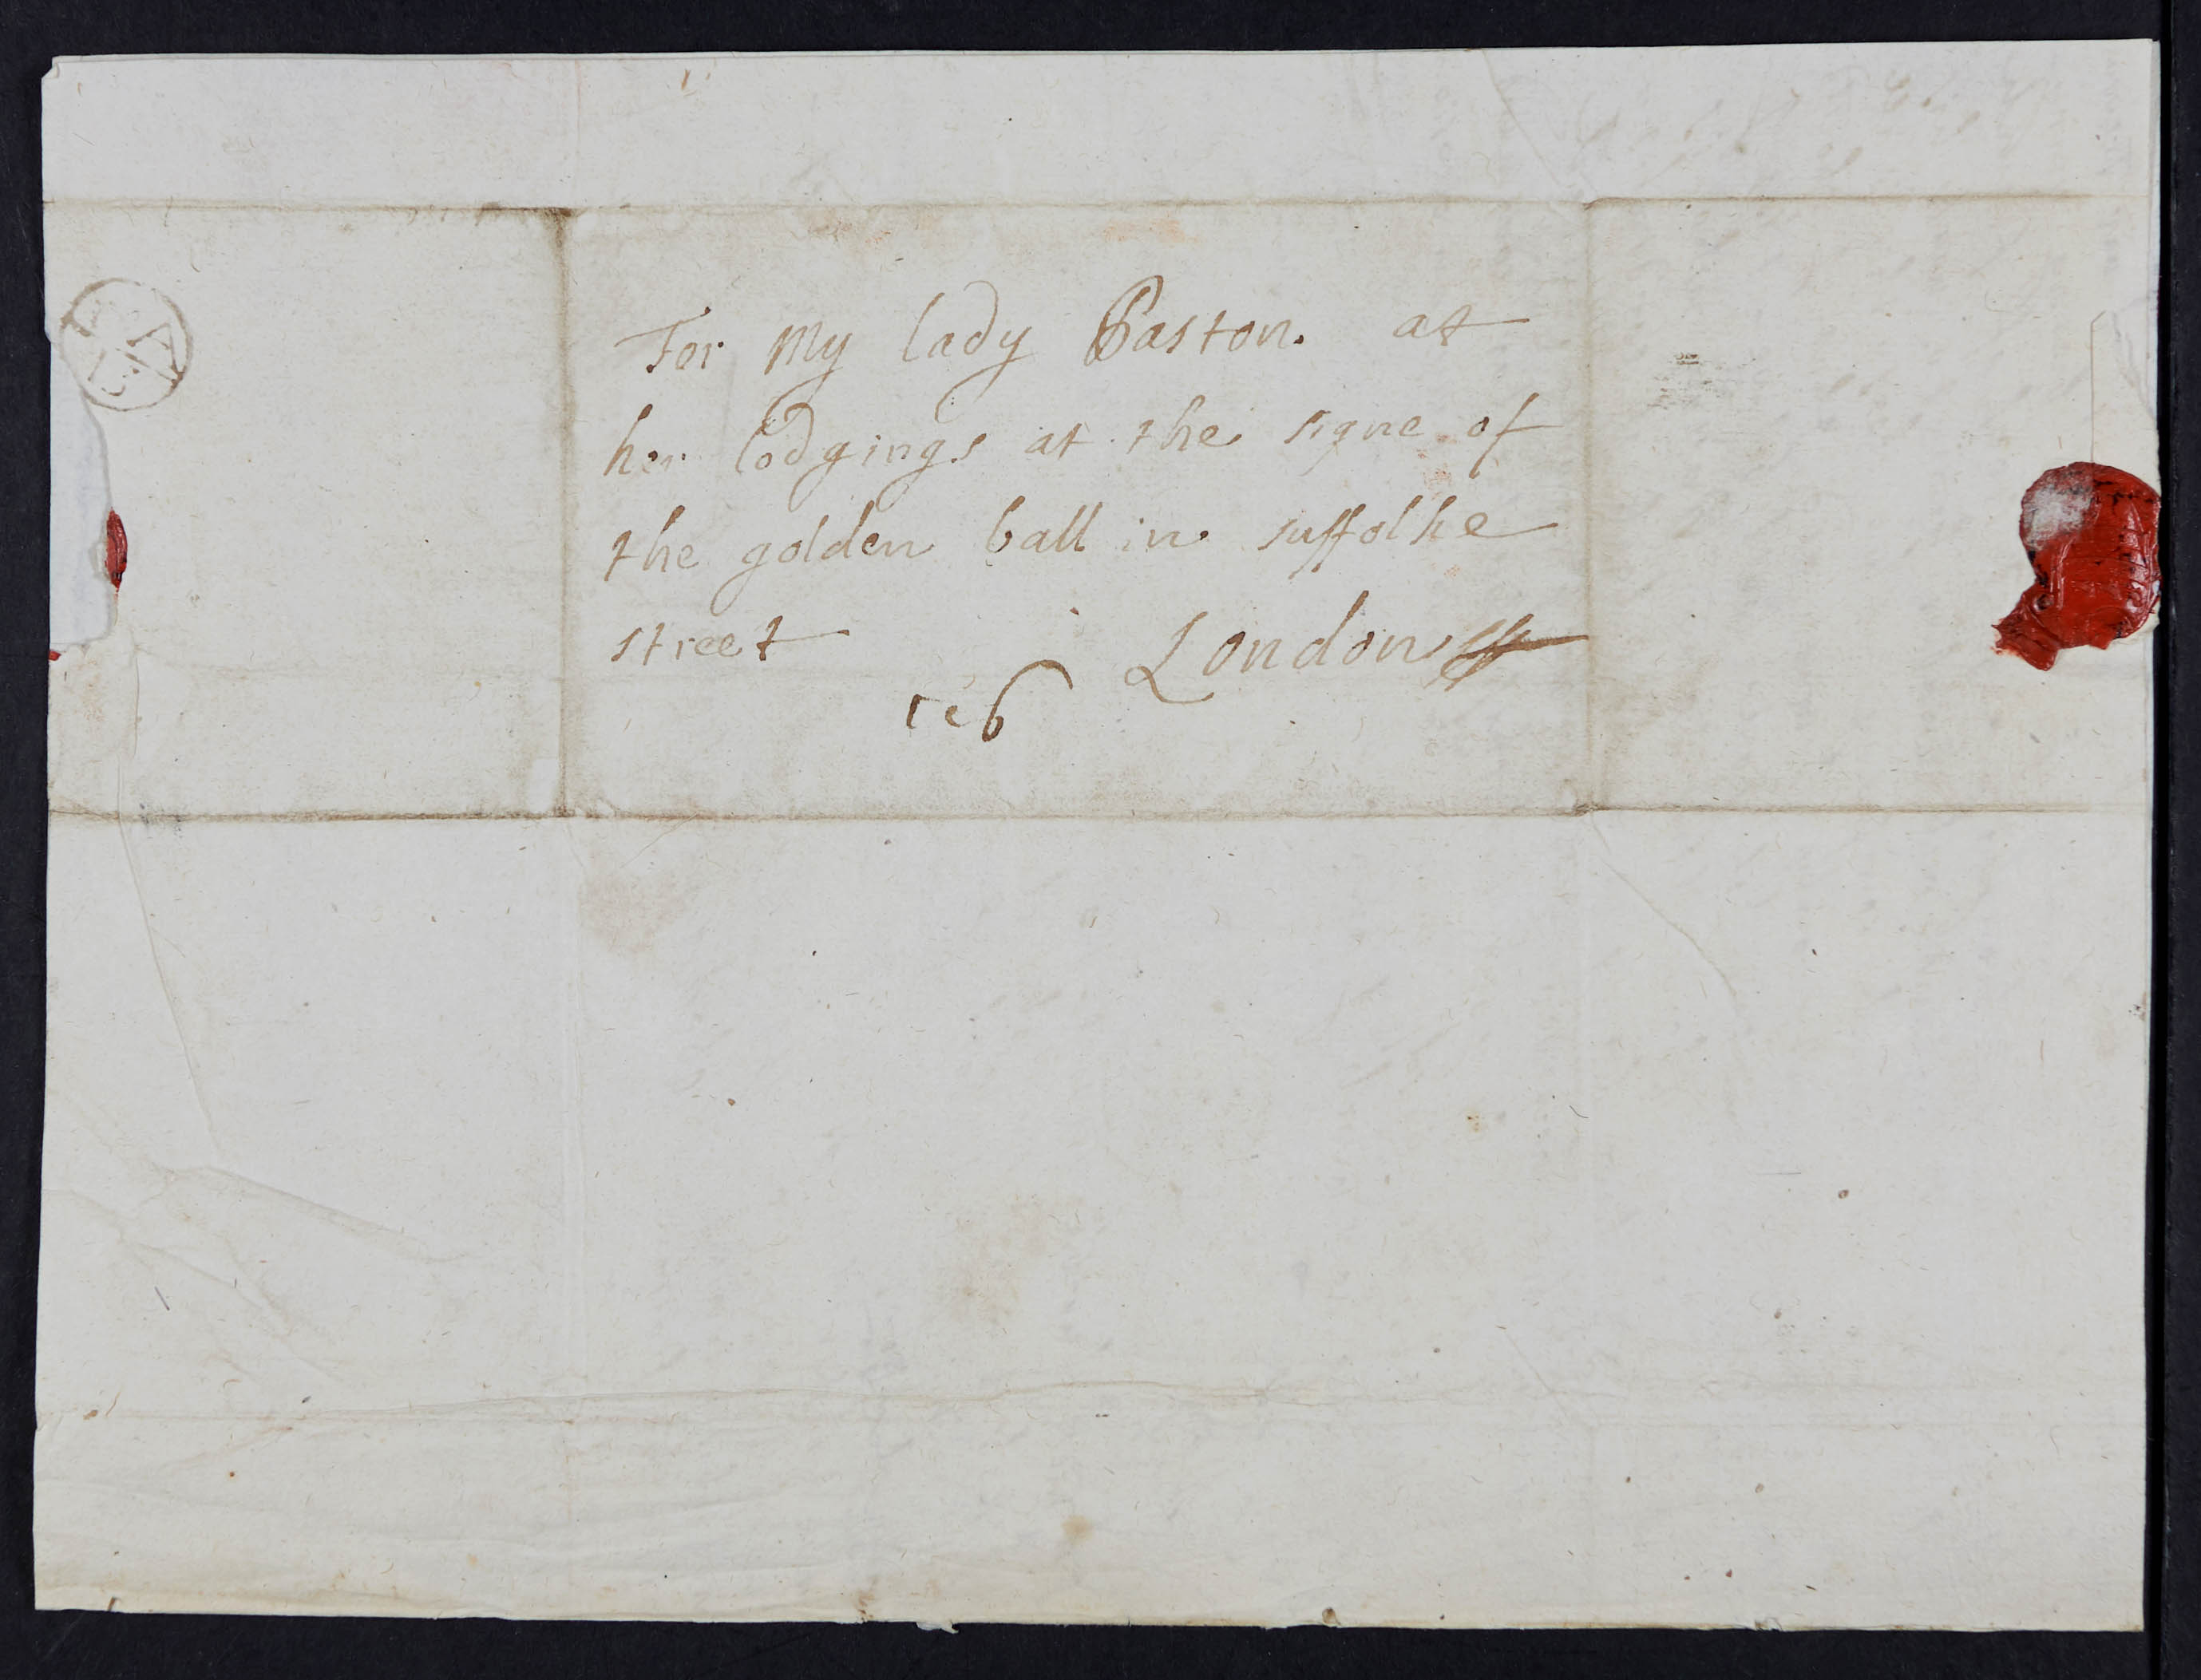 For My lady Paston. at
her lodgings at the signe of
the golden ball in suffolke
street London